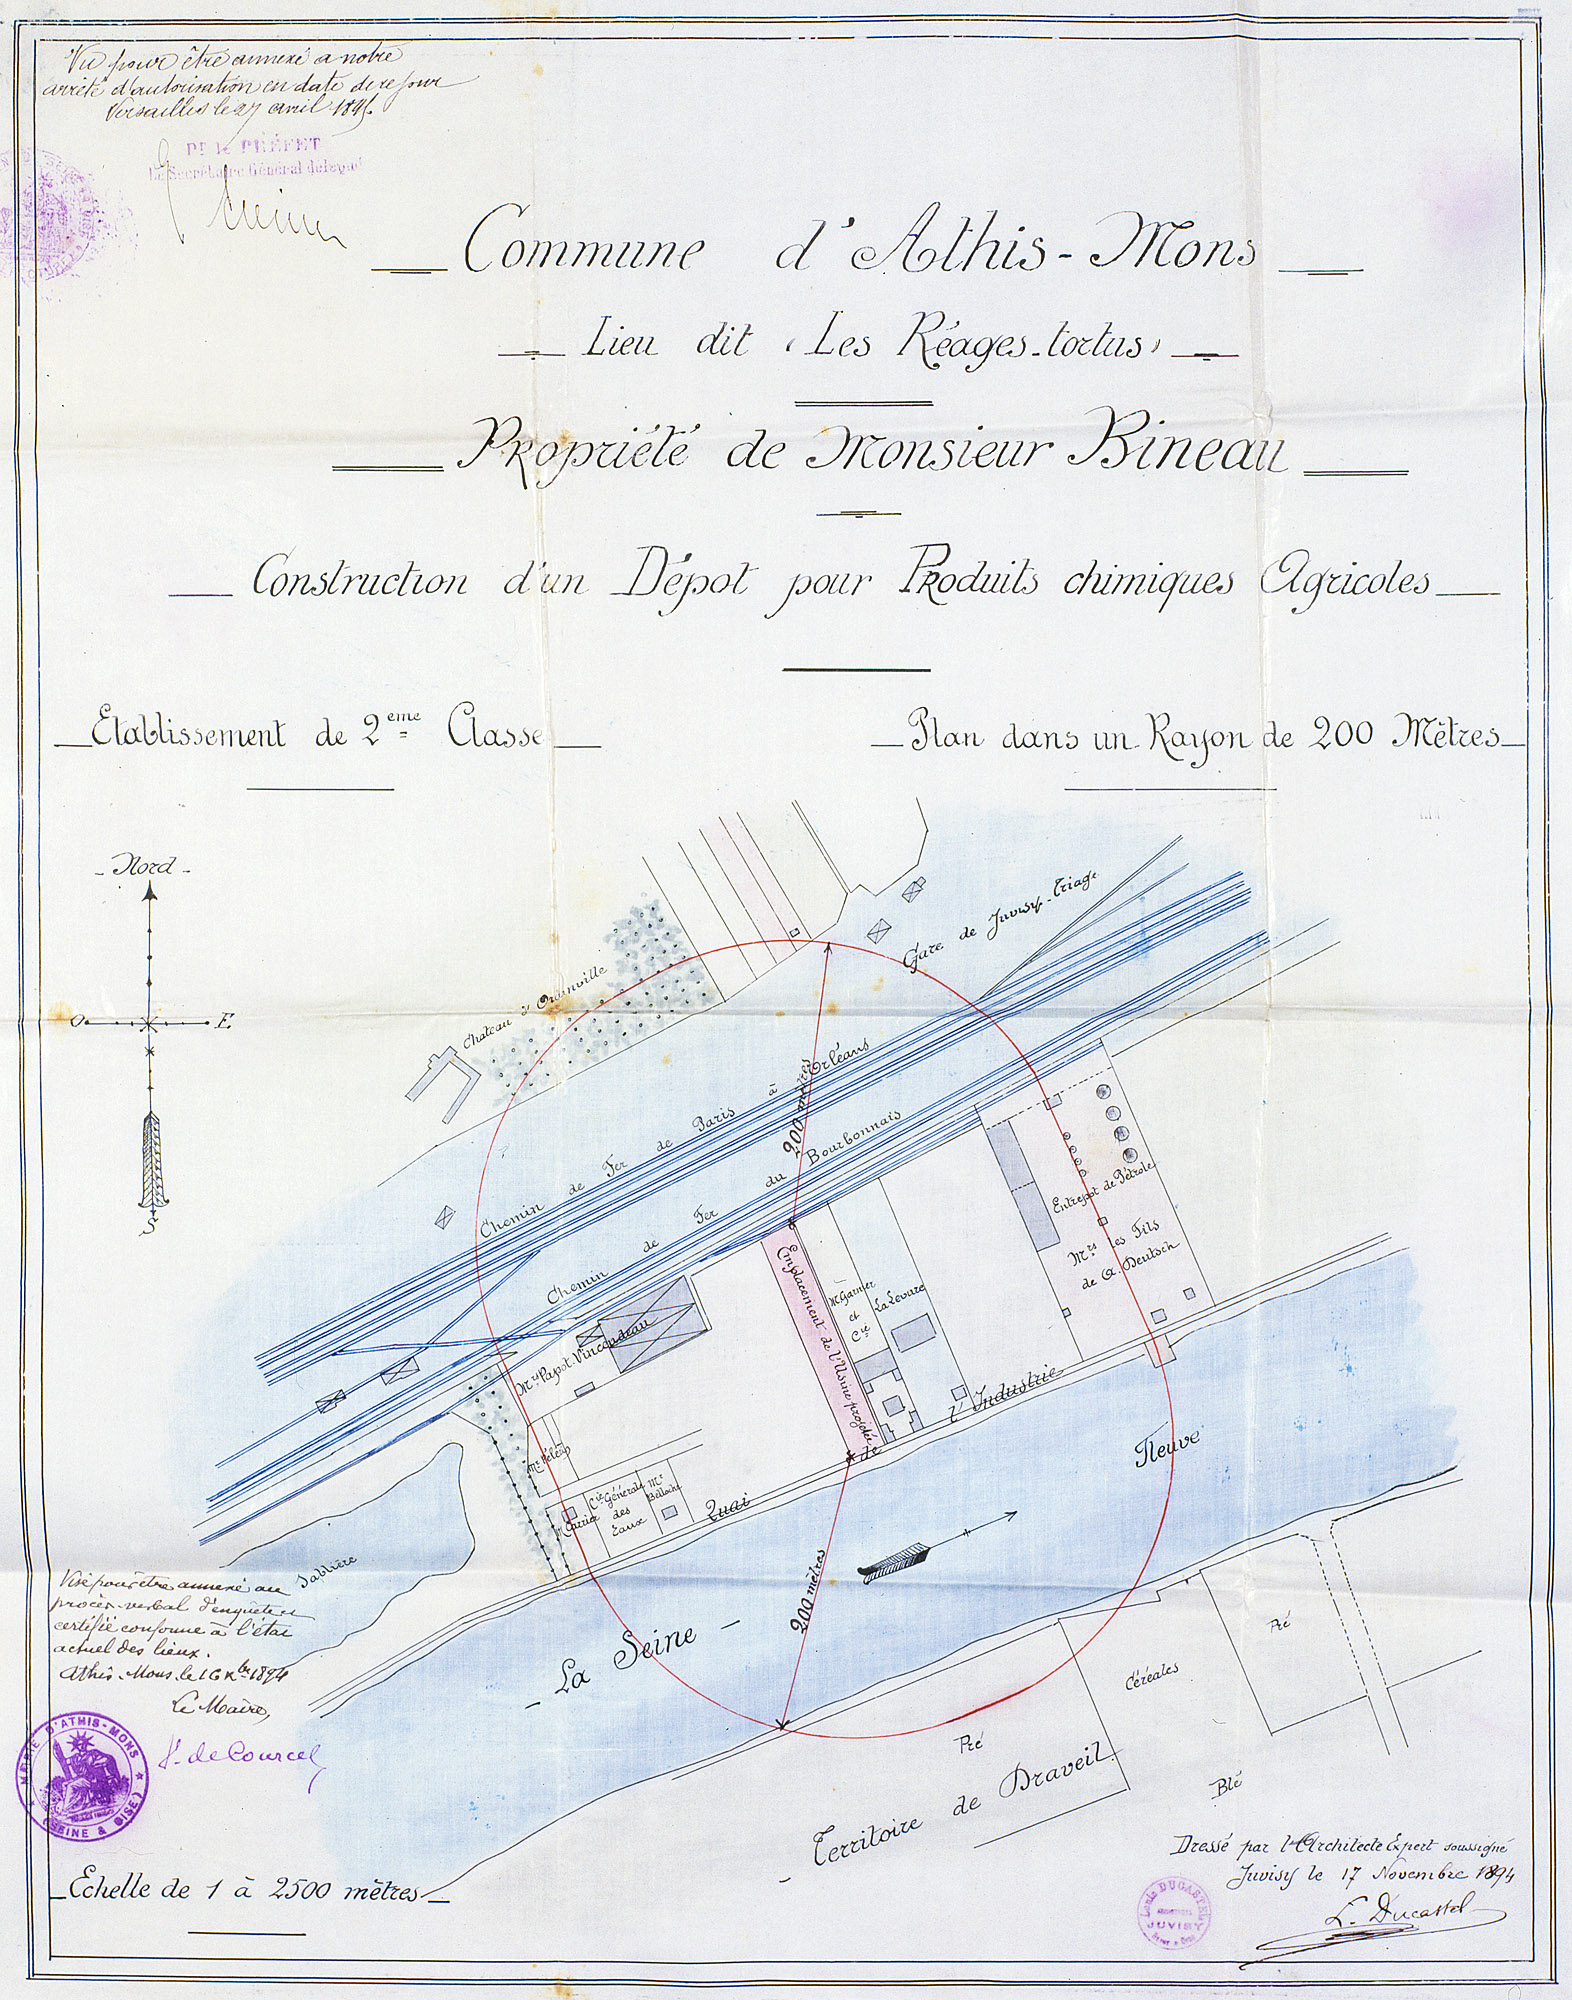 Vu pour être annexé a notre
arrêté d'autorisation en date de ce jour
Versailles le 27 avril 1895.
Pr le PRÉFET
Le Secrétaire Général délégué
Commune d'Athis-Mons
Lieu dit "Les Réages-tortus"
Propriété de Monsieur Bineau
Construction d'un Dépot pour Produits chimiques Agricoles
Etablissement de 2eme Classe
Plan dans un Rayon de 200 Mètres
Nord
O
E
S
Gare de Juvisy-Triage
Chateau d'Oranville
Chemin de Fer de Paris à Orléans
200 mètres
Chemin de Fer du Bourbonnais
Entrepot de Pétrole
Mrs les Fils
de A. Deutsch
Emplacement de l'Usine projetée
Mr Garnier
et
Cie
La Levure
Mrs Papot-Vincondeau
Cie Générale
des
Eaux
Mr
Quai de l'Industrie
Fleuve
Sablière
La Seine
200 mètres
Pré
Céréales
Pré
Blé
Territoire de Draveil
Visé pour être annexé au
procès-verbal d'enquête et
certifié conforme à l'état
actuel des lieux.
Athis-Mons, le 16 Xbre 1894
Le Maire,
de Courcel
MAIRIE D'ATHIS-MONS
(SEINE & OISE)
Echelle de 1 à 2500 mètres
Dressé par l'Architecte Expert soussigné
Juvisy le 17 Novembre 1894
L. Ducastel
Louis DUCASTEL
JUVISY